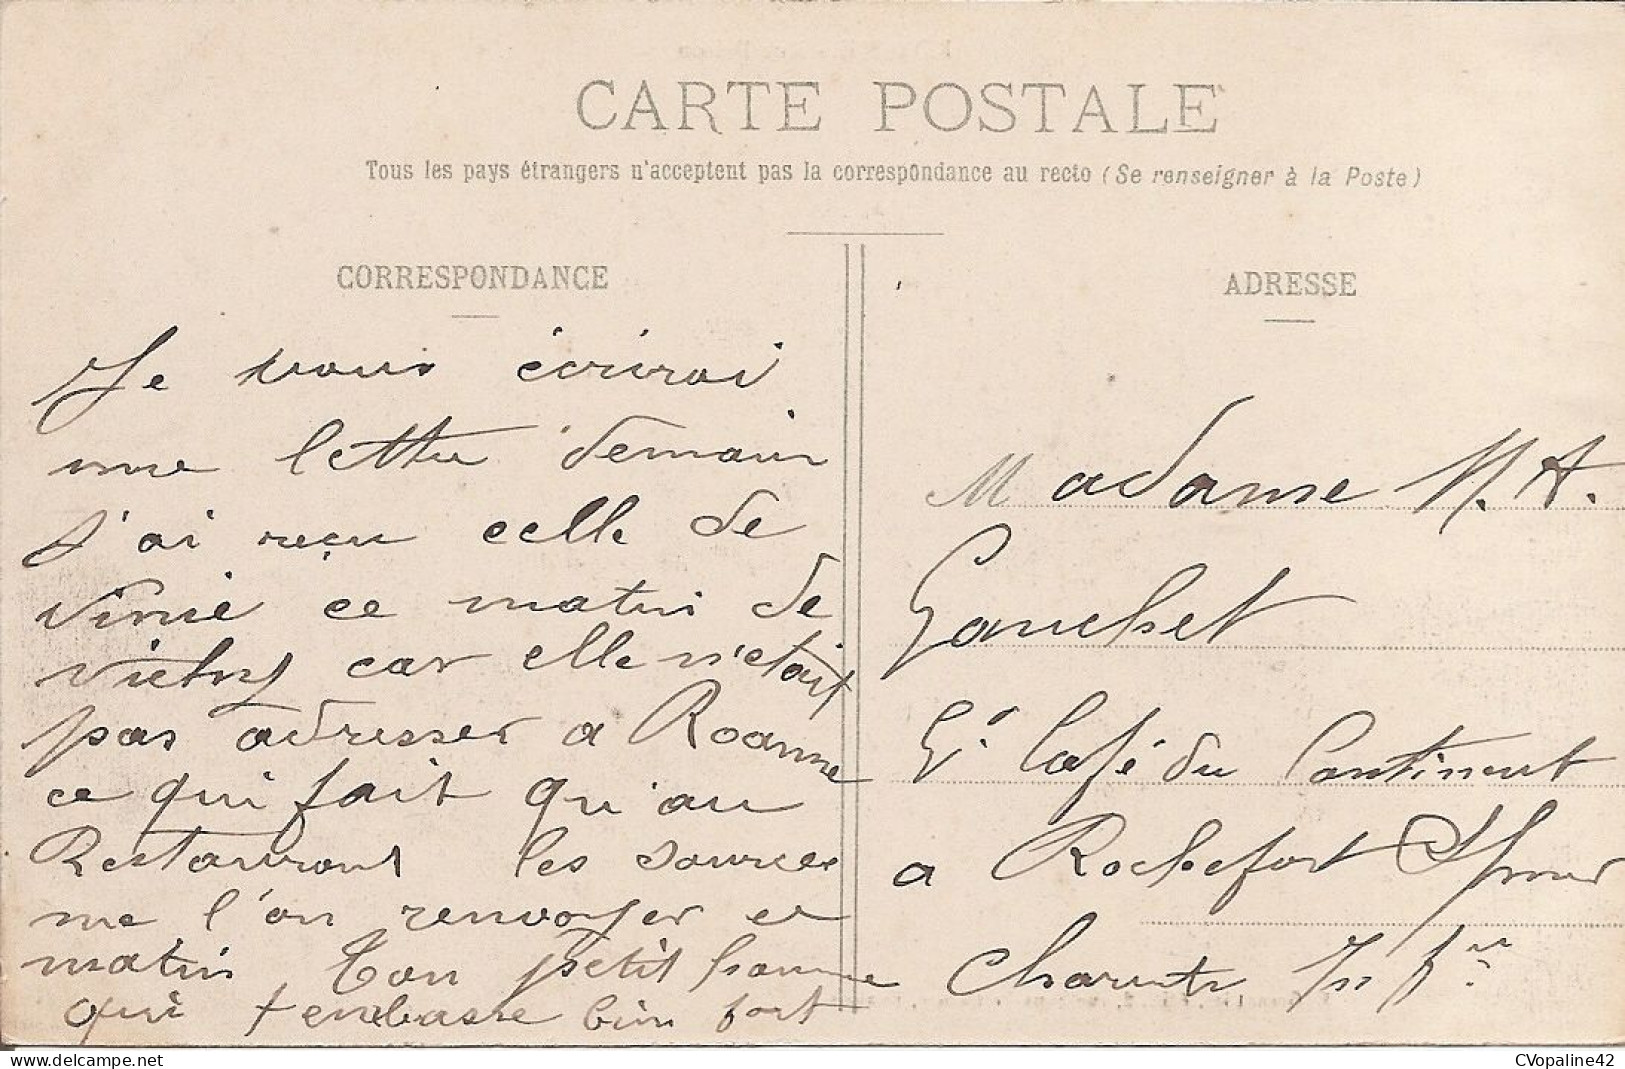 CARTE POSTALE
Tous les pays étrangers n'acceptent pas la correspondance au recto (Se renseigner à la Poste)
CORRESPONDANCE
Je vous écrirai
une lettre demain
j'ai reçu celle de
ce matin de
vichy car elle n'etait
pas adresser a Roanne
ce qui fait qu'au
Restaurant les sources
me l'on renvoyer ce
matin Ton petit homme
qui t'embrasse bien fort
ADRESSE
Madame M. A.
Gauchet
Gd Café du Continent
a Rochefort S/mer
Charente Infre
CVopaline42